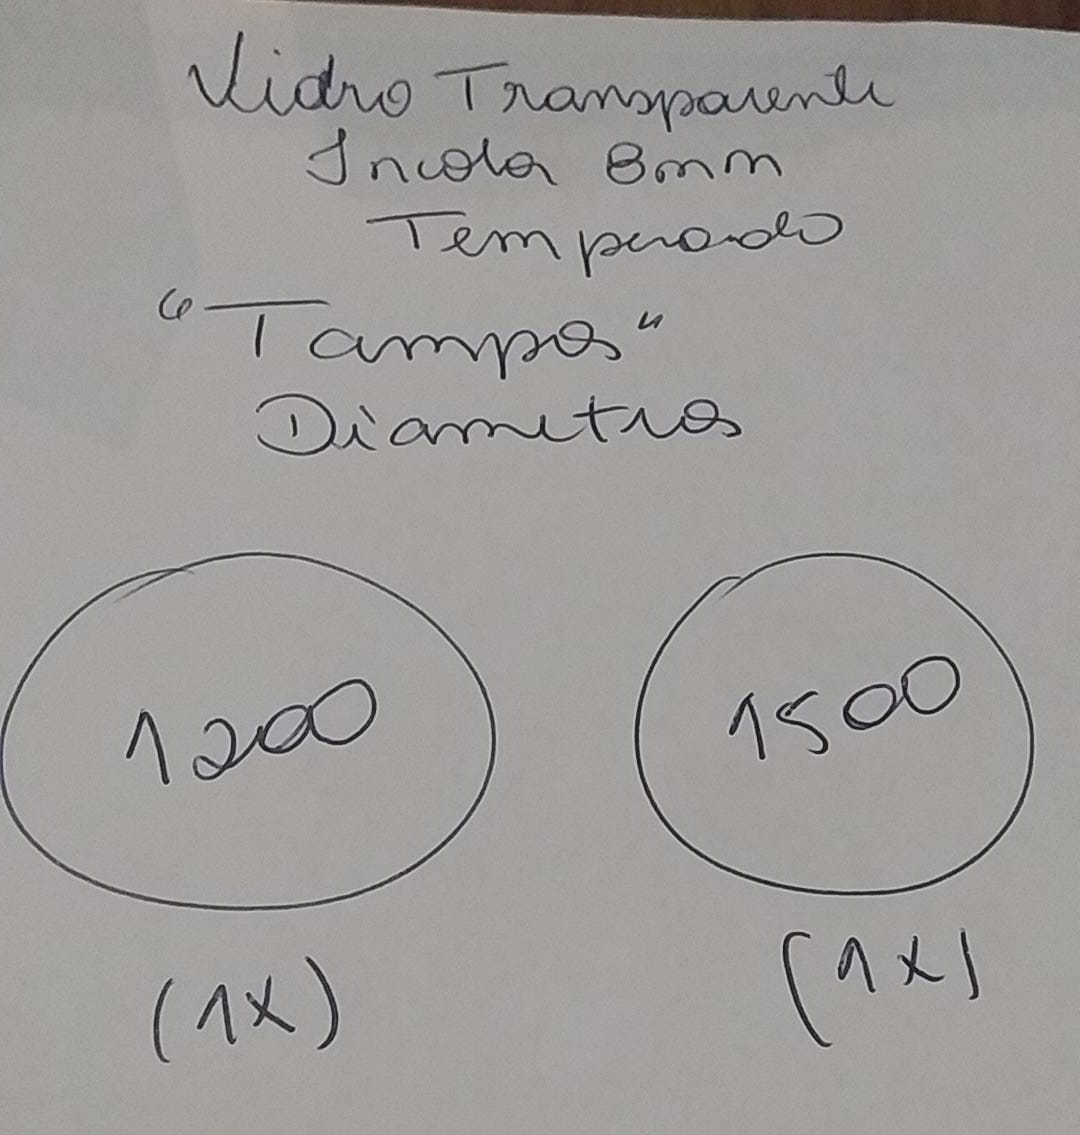 Vidro Transparente
Incolor 8mm
Temperado
"Tampos"
Diametros
1200
1500
(1X)
(1X)